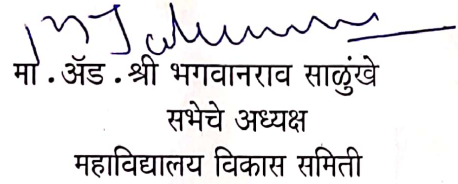 मा . ॲड . श्री भगवानराव साळुंखे
सभेचे अध्यक्ष
महाविद्यालय विकास समिती